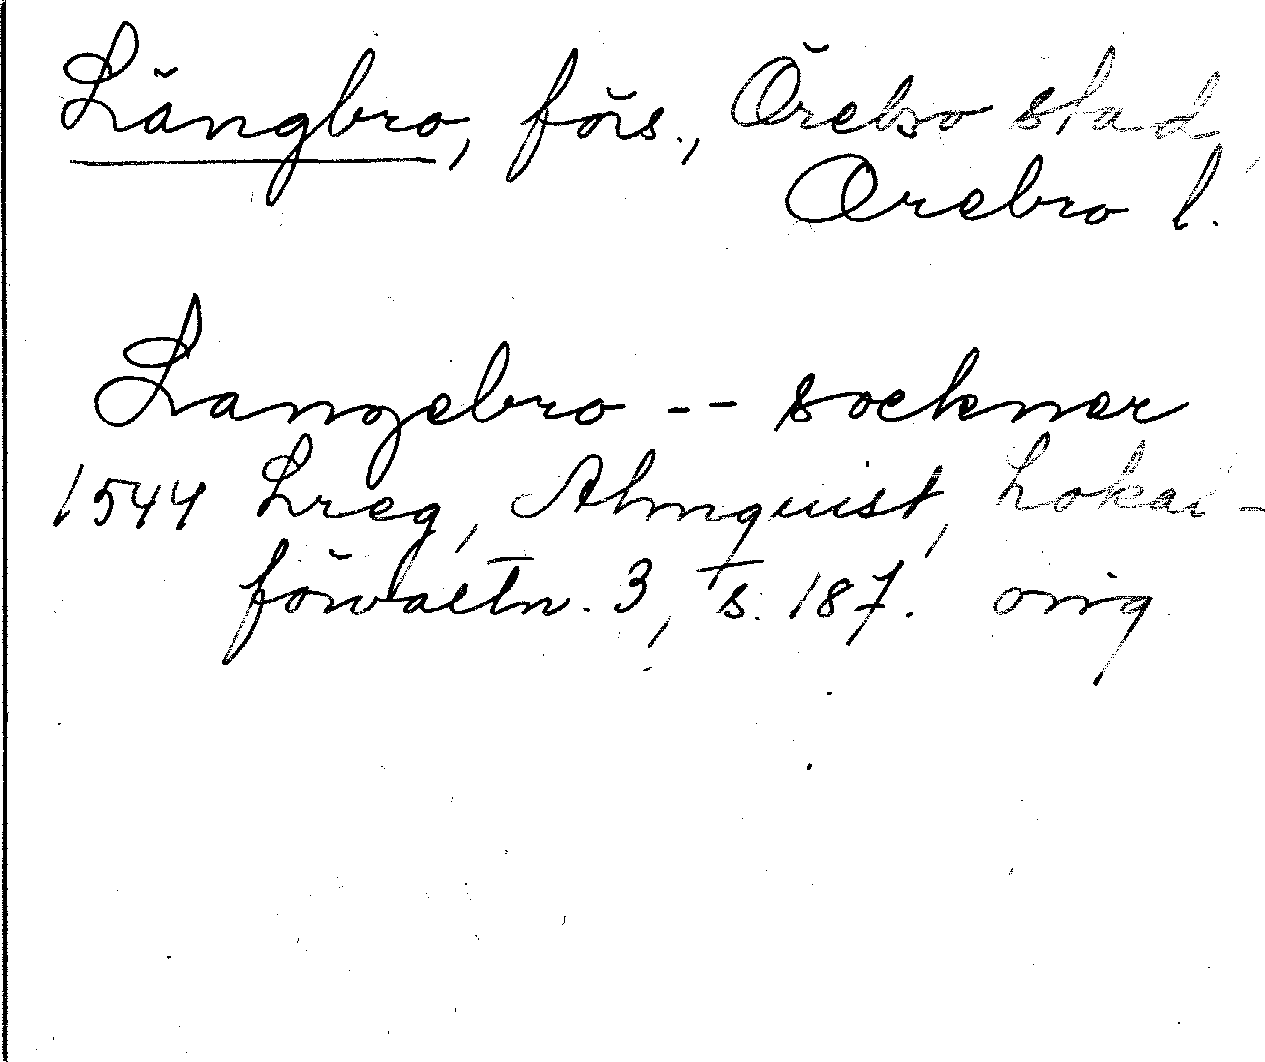 Längbro, förs., Örebro stad,
Örebro l.
Langebro -- sockner
1544 Lreg, Almquist, Lokal-
förvaltn. 3, s. 187. orig